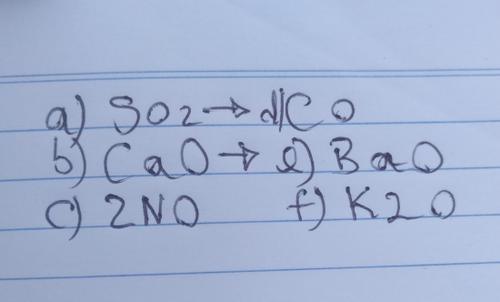 a) SO2 → d) CO
b) CaO → e) BaO
c) 2NO f) K2O